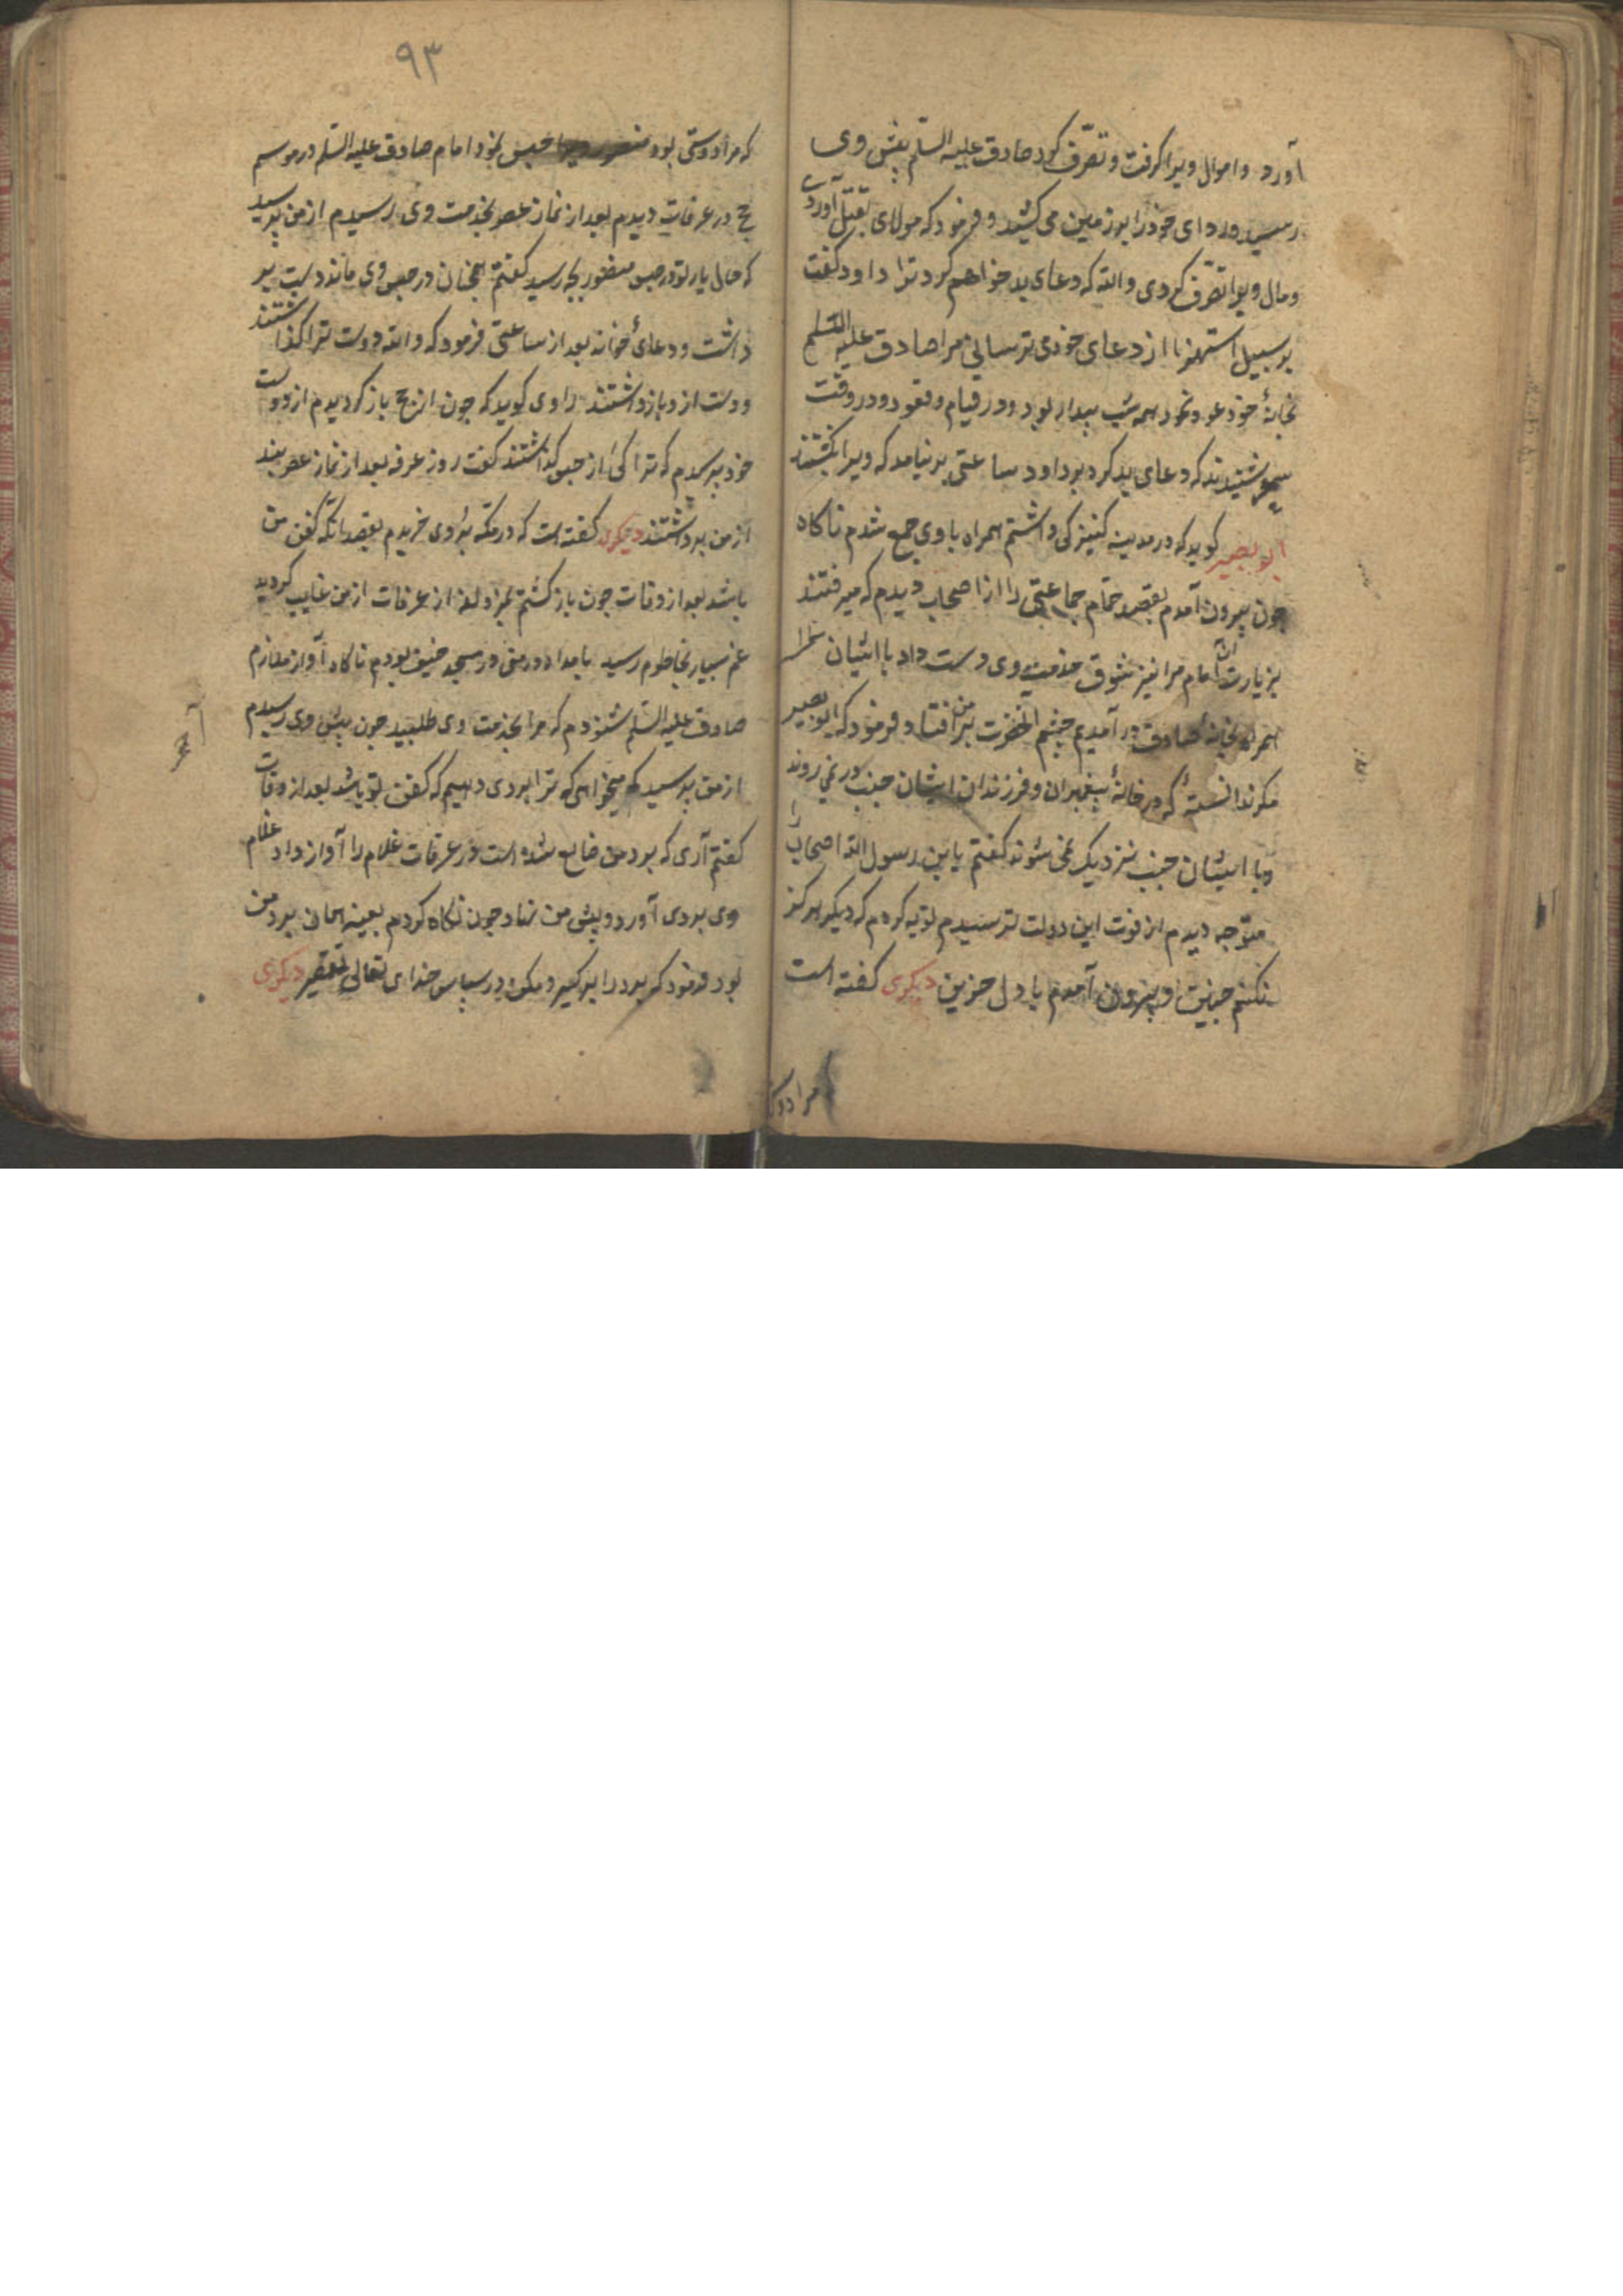 آورد و اموال ویرا کرفت و تصرّف کرد صادق علیه السّلم پیش وی
رسید و ردای خود را بر زمین می کشید و فرمود که مولای بقتل آوردی
و مال ویرا تصرّف کردی والله که دعای بد خواهم کرد ترا داود کفت
بر سبیل استهزا از دعای خودی ترسانی مرا صادق علیه السّلم
بخانهٔ خود عود نمود همه شب بیدار بود و در قیام و قعود و در وقت
سحر شنیدند که دعای بد کرد بر داود ساعتی بر نیامد که ویرا بکشتند
ابو بصیر کوید که در مدینه کنیزکی داشتم همراه با وی جمع شدم ناکاه
چون بیرون آمدم بقصد حمّام جماعتی را از اصحاب دیدم که میرفتند
بزیارت امام مرا نیز شوق خدمت وی دست داد با ایشان
همراه بخانهٔ صادق در آمدیم چشم آنحضرت بر من افتاد فرمود که ابو بصیر
مکر ندانستهٔ که در خانهٔ پیغمبران و فرزندان ایشان جنب در نمی روند
و با ایشان جنب نزدیک نمی شوند کفتم یا بن رسول الله اصحاب را
متوّجه دیدم از فوت این دولت ترسیدم توبه کردم که دیکر هرکز
نکنم چنین و بیرون آمدم با دل حزین دیکری کفته است
مرا دوستی
۹۳
که مرا دوستی بود منصور ویرا حبس نمود امام صادق علیه السّلم در موسم
حج در عرفات دیدم بعد از نماز عصر بخدمت وی رسیدم از من پرسید
که حال یار تو در حبس منصور بچه رسید کفتم همچنان در حبس وی مانده دست بر
داشت و دعای خواند بعد از ساعتی فرمود که والله دوست ترا کذاشتند
و دست از و باز داشتند راوی کوید که چون از حج باز کردیدم از دوست
خود پرسیدم که ترا کی از حبس کذاشتند کفت روز عرفه بعد از نماز عصر بند
از من برداشتند دیکری کفته است که در مکّه بردی خریدم بقصد انکه کفن من
باشد بعد از وفات چون باز کشتم بمزدلفه از عرفات از من غایب کردید
غم بسیار بخاطرم رسید بامداد در منی در مسجد خیف بودم ناکاه آواز ملازم
صادق علیه السّلم شنودم که مرا بخدمت وی طلبید چون پیش وی رسیدم
از من پرسید که میخواهی که ترا بردی دهیم که کفن تو باشد بعد از وفات
کفتم آری که برد من ضایع شده است در عرفات غلام را آواز داد غلام
وی بردی آورد و پیش من نهاد چون نکاه کردم بعینه همان برد من
بود فرمود که برد را بر کیر و مکن در سپاس خدای تعالی تقصیر دیکری